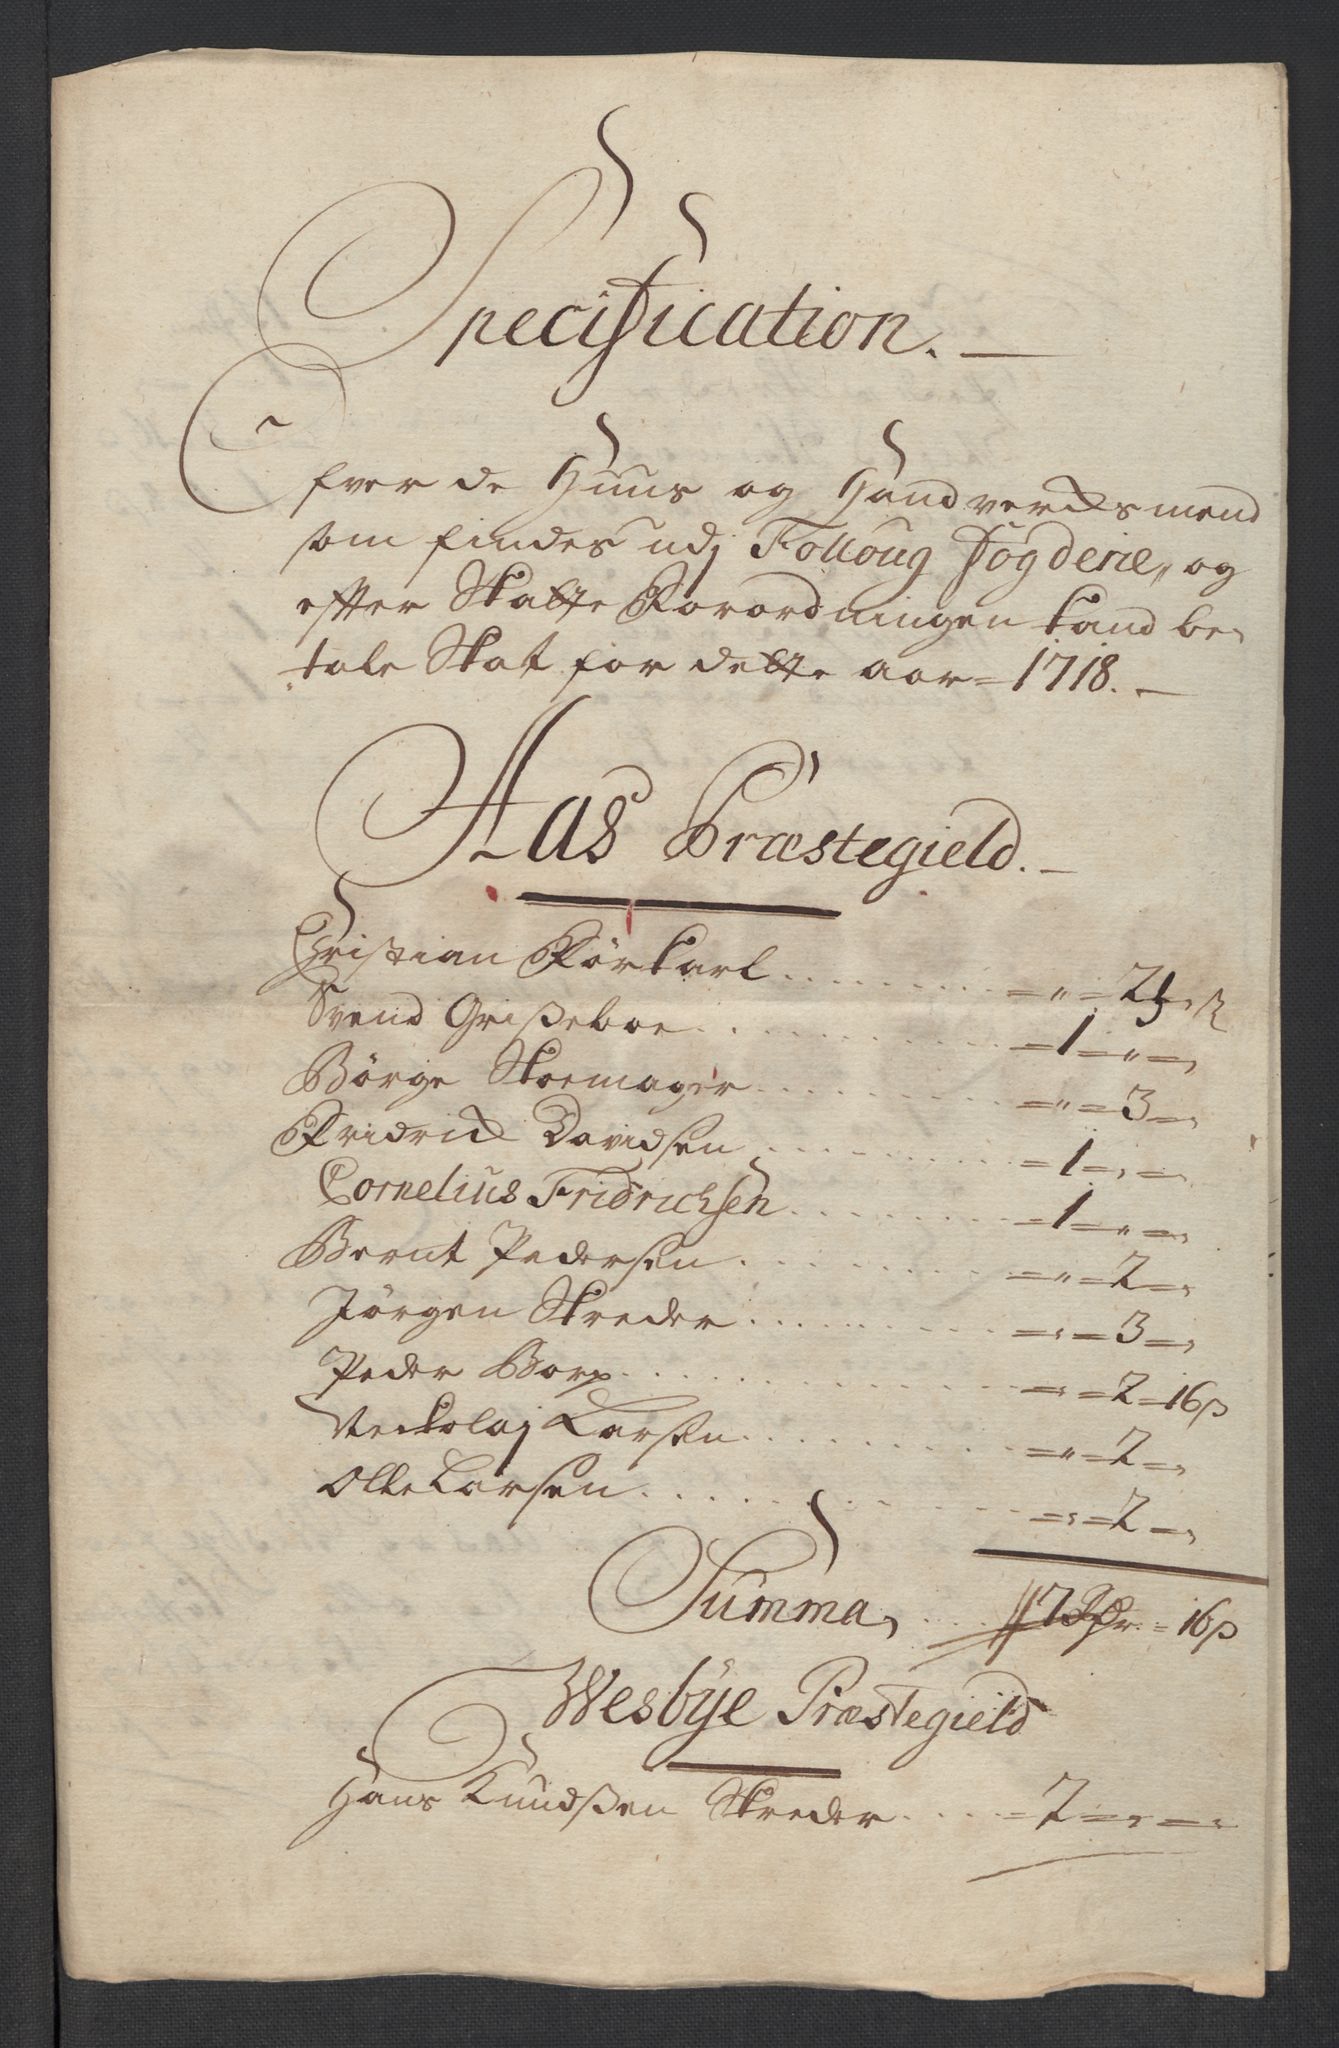 Specification.
Ofver de Huus og Handverchsmend
som findes udj Folloug Fogderie, og
efter Skatte Forordningen kand be-
tale Skat for dette aar = 1718.
Aas Præstegield.
Christian . . . . = " = 2
Svend Grisseboe . . . . = 1 = " =
Børge Skoemager . . . . = " = 3 =
Fridrich Davidsen . . . . = 1 = " =
Cornelius Fridrichsen . . . . = 1 = " =
Bernt Pedersen . . . . = " = 2 =
Jørgen Skreder . . . . = " = 3 =
Peder Borg . . . . = " = 2 = 16 s
Neckolaj Larsen . . . . = " = 2 =
Olle Larsen . . . . = " = 2 =
Summa . . . . 7 = 16 s
Wesbÿe Præstegield
Hans Knudssen Skreder . . . . = 2 = " =